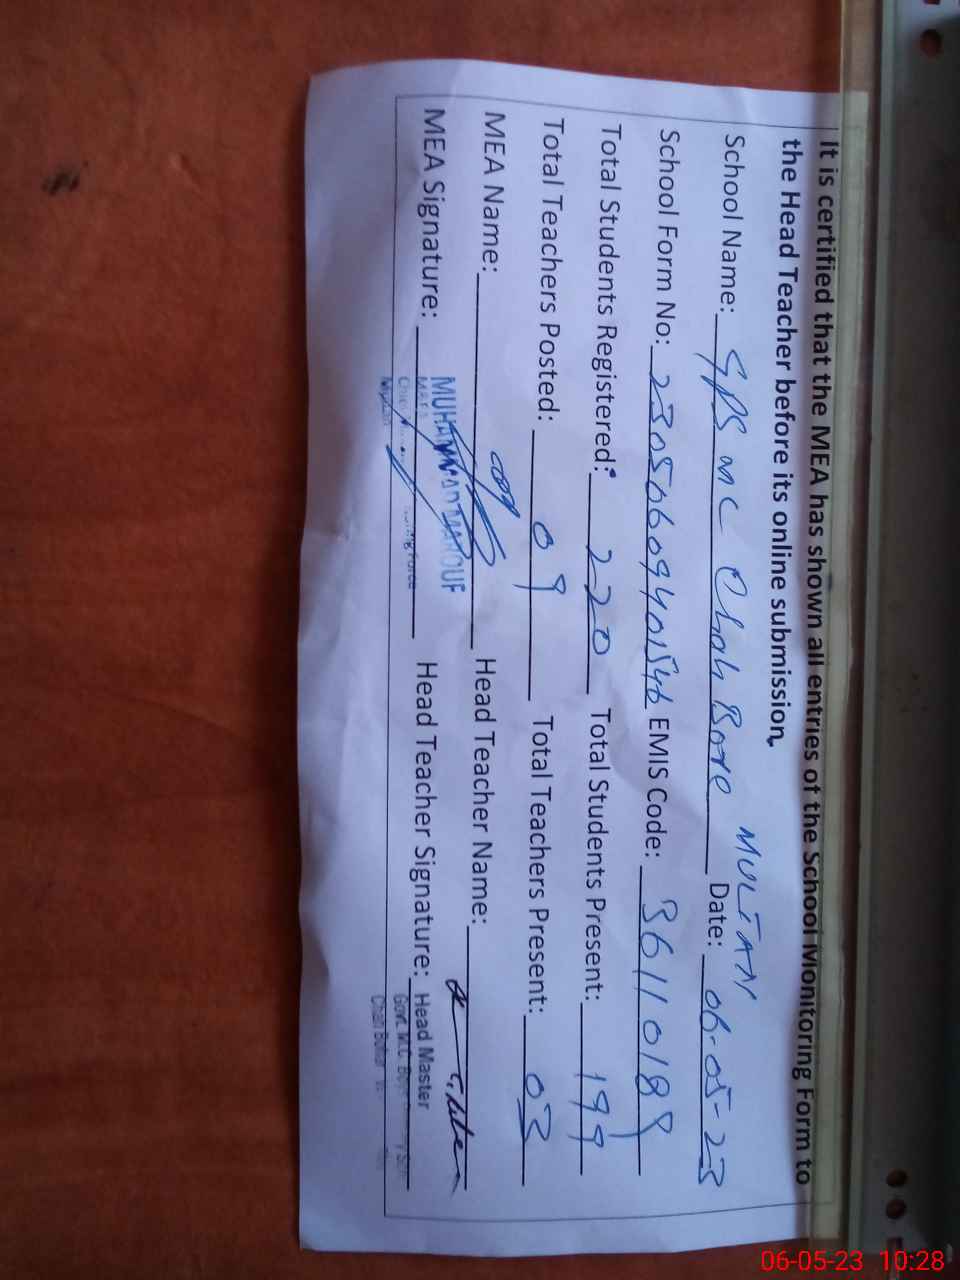 It is certified that the MEA has shown all entries of the School Monitoring Form to
the Head Teacher before its online submission.
MULTAN
School Name: GPS MC Chah Bore Date: 06-05-23
School Form No: 23050609401546 EMIS Code: 36110189
Total Students Registered: 220 Total Students Present: 199
Total Teachers Posted: 09 Total Teachers Present: 03
MEA Name: Head Teacher Name:
MUHAMMAD MAROUF
MEA Signature: Head Teacher Signature: Head Master
Govt. M.C. Boys
Multan Chah Bohar
06-05-23 10:28